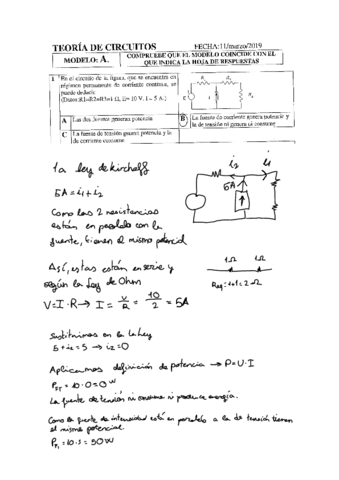 TEORÍA DE CIRCUITOS
FECHA:11/marzo/2019
MODELO: A.
COMPRUEBE QUE EL MODELO COINCIDE CON EL
QUE INDICA LA HOJA DE RESPUESTAS
1 En el circuito de la figura, que se encuentra en
régimen permanente de corriente continua, se
puede deducir:
(Datos:R1=R2=R3=1 Ω, E= 10 V, I= 5 A.)
A Las dos fuentes generan potencia
B La fuente de corriente genera potencia y
la de tensión ni genera ni consume
C La fuente de tensión genera potencia y la
de corriente consume
1a ley de kirchoff
5A = i1 + i2
Como las 2 resistencias
están en paralelo con la
fuente, tienen el mismo potencial
i2 i1
5A
Así, estas están en serie y
según la Ley de Ohm
V=I·R → I = V/R = 10/2 = 5A
1Ω 1Ω
Req: 1+1 = 2Ω
Sustituimos en la 1a ley
5 + i2 = 5 → i2 = 0
Aplicamos definición de potencia → P=U·I
= 10·0 = 0 W
La fuente de tensión ni consume ni produce energía.
Como la fuente de intensidad está en paralelo a la de tensión tienen
el mismo potencial.
= 10·5 = 50W